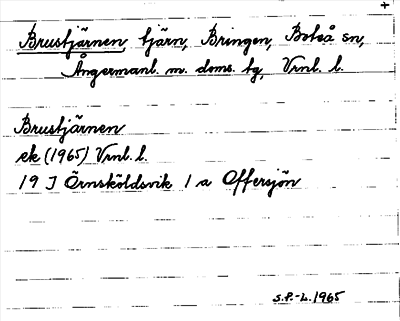 +
Brustjärnen tjärn, Bringen, Boteå sn,
Ångermanl. m. doms. tg, Vrnl. l.
Brustjärnen
ek (1965) Vrnl. l.
19 J Örnsköldsvik 1 a Offersjön
S.P.-L. 1965